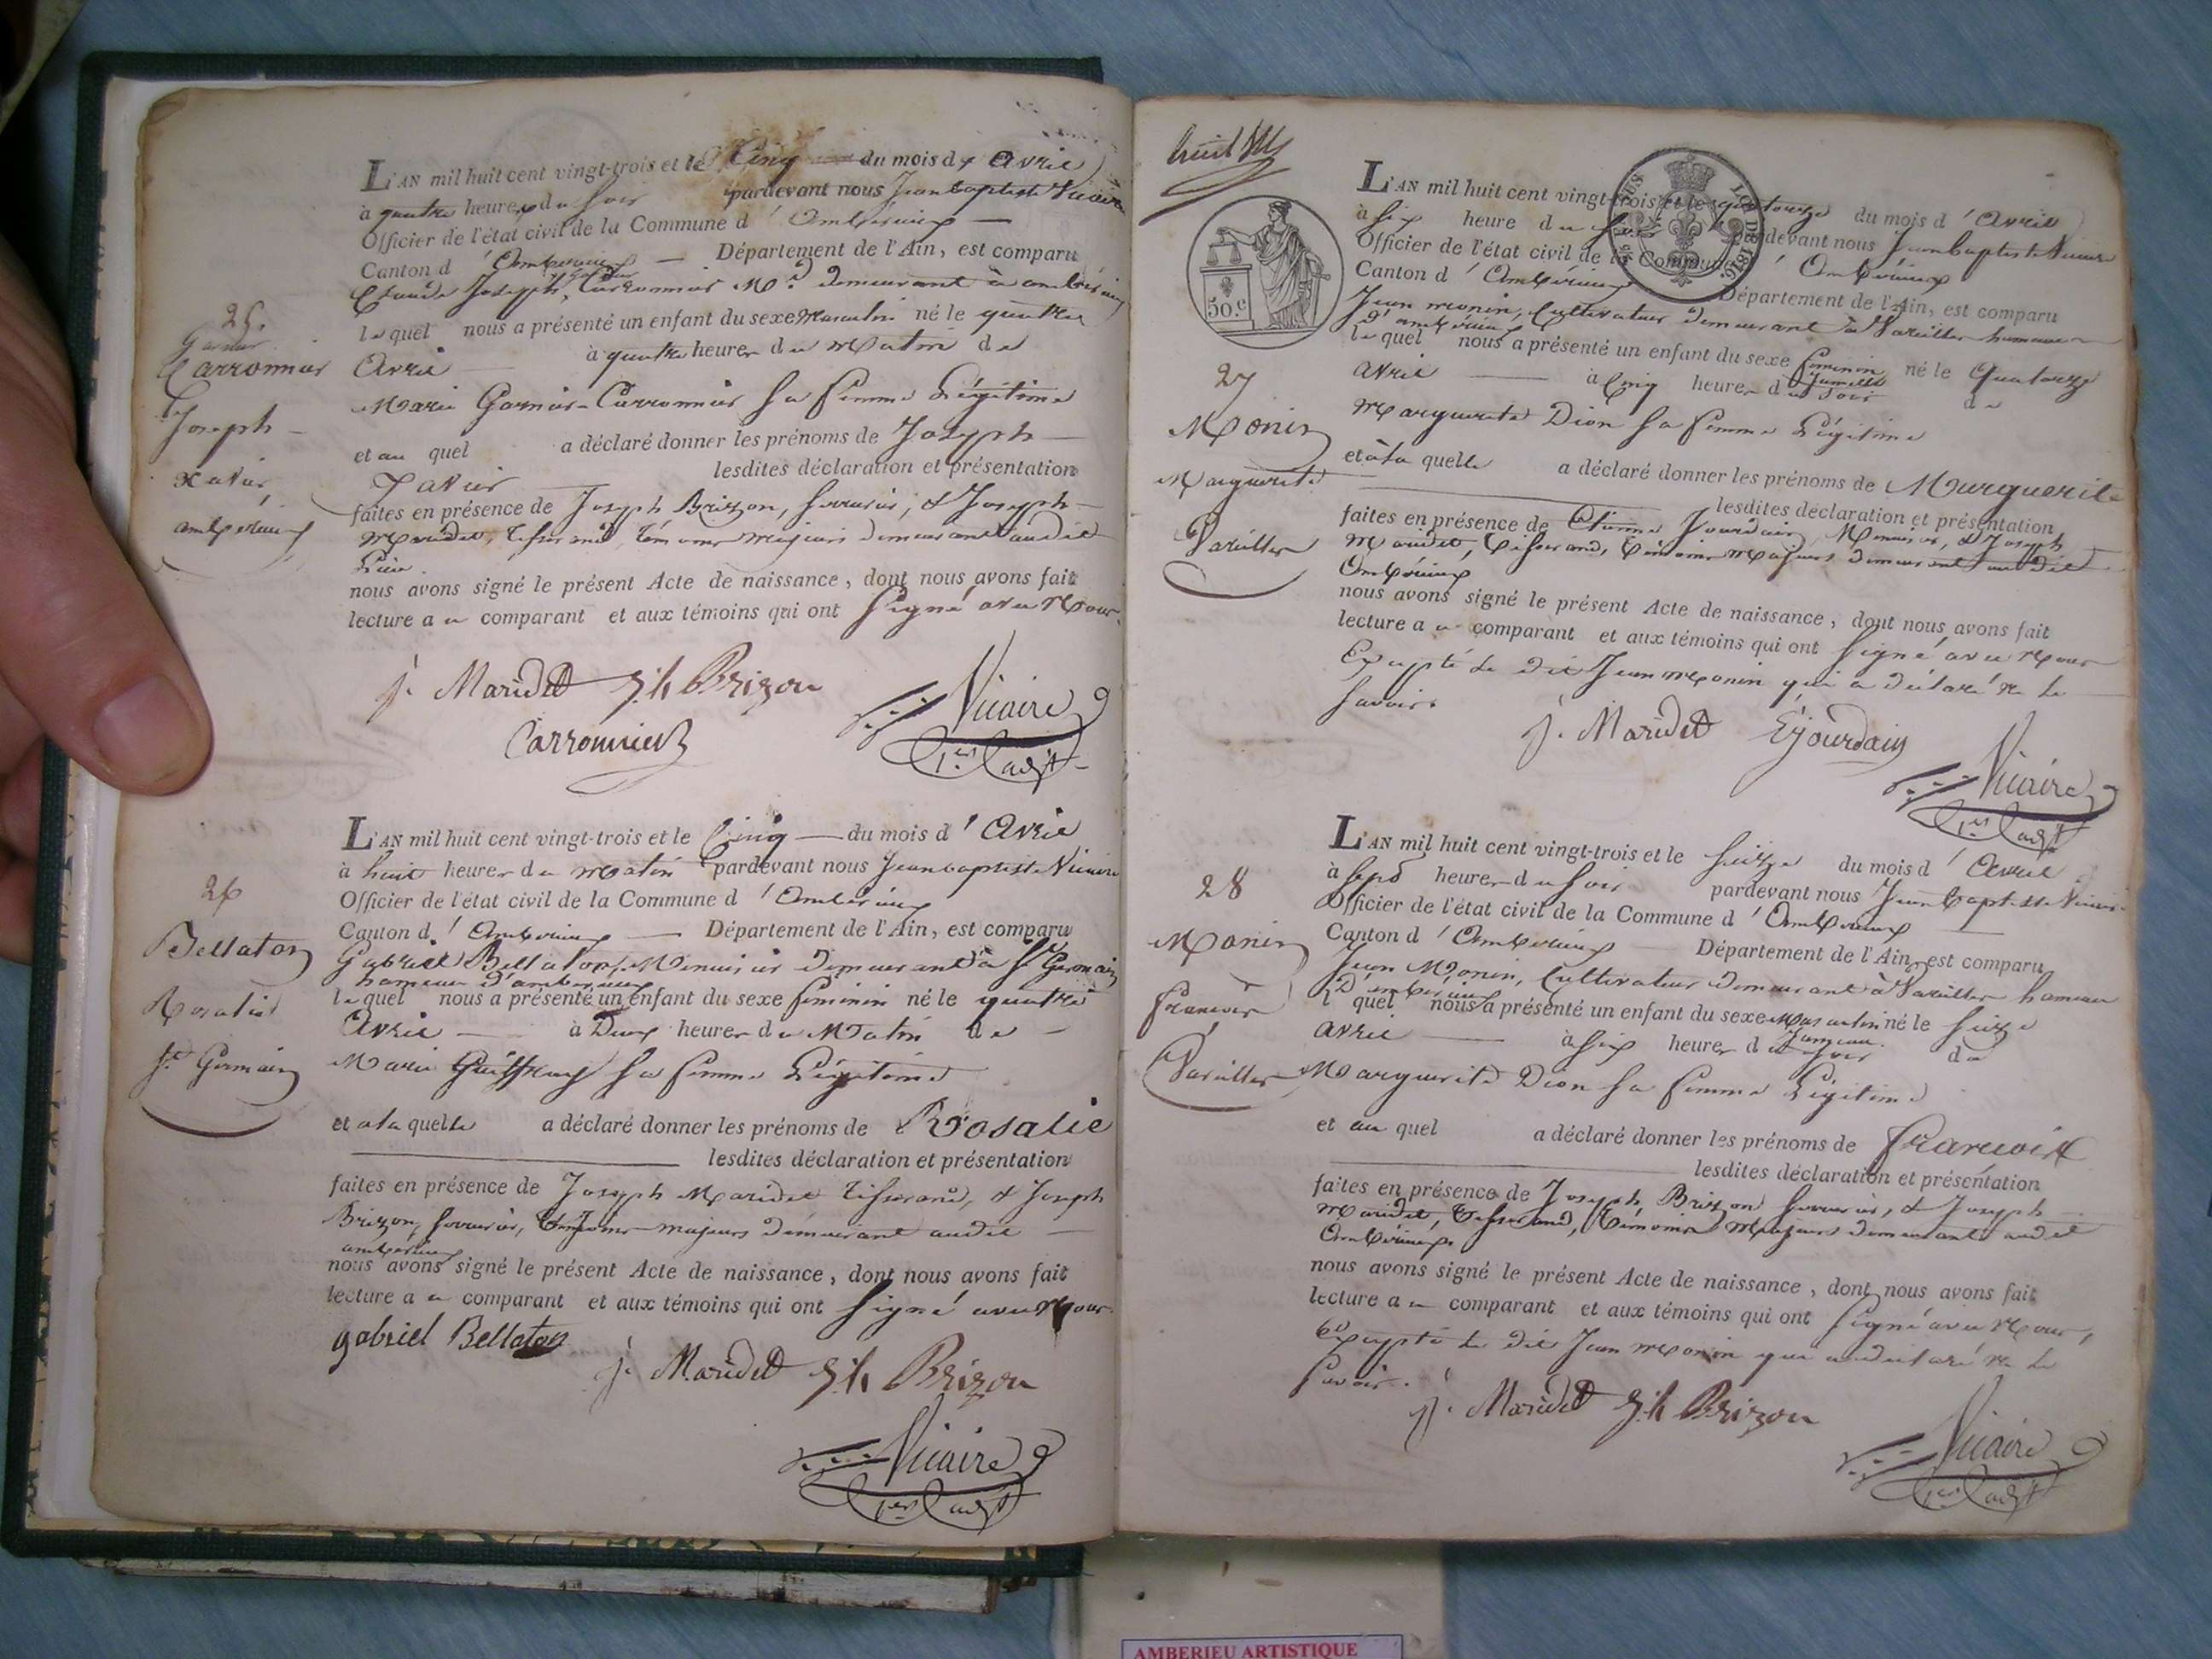 L'AN mil huit cent vingt-trois et le Cinq du mois d' avril
à quatre heures du soir pardevant nous Jean baptiste Vicaire
Officier de l'état civil de la Commune d' Ambérieux
Canton d' Ambérieux Département de l'Ain, est comparu
Claude Joseph Carronnier Md. demeurant à ambérieux
lequel nous a présenté un enfant du sexe Masculin né le quatre
avril à quatre heures du matin de
Marie Garnier-Carronnier sa femme Légitime
et au quel a déclaré donner les prénoms de Joseph
Xavier lesdites déclaration et présentation
faites en présence de Joseph Brizon, serrurier, & Joseph
Maridet, tisserand, témoins majeurs demeurant audit
Lieu.
nous avons signé le présent Acte de naissance, dont nous avons fait
lecture au comparant et aux témoins qui ont signé avec Nous.
J. Maridet Jh Brizon
Carronnier
Vicaire
1er adjt
25.
Garnier
Carronnier
Joseph
xavier
ambérieux
L'AN mil huit cent vingt-trois et le Cinq du mois d' Avril
à huit heures du matin pardevant nous Jean baptiste Vicaire
Officier de l'état civil de la Commune d' Ambérieux
Canton d' Ambérieux Département de l'Ain, est comparu
Gabriel Bellaton, Menuisier demeurant à St Germain
hameau d'ambérieux
lequel nous a présenté un enfant du sexe féminin né le quatre
Avril à Deux heures du Matin de
Marie Guiffray sa femme Légitime
et à la quelle a déclaré donner les prénoms de Rosalie
lesdites déclaration et présentation
faites en présence de Joseph Maridet tisserand, & Joseph
Brizon, serrurier, témoins majeurs demeurant audit
ambérieux
nous avons signé le présent Acte de naissance, dont nous avons fait
lecture au comparant et aux témoins qui ont signé avec Nous.
gabriel Bellaton
J. Maridet Jh Brizon
Vicaire
1er adjt
26
Bellaton
Rosalie
St Germain
huit
50.c
LOI DE 1816.
L'AN mil huit cent vingt-trois et le quatorze du mois d' Avril
à six heure du soir pardevant nous Jean baptiste Vicaire
Officier de l'état civil de la Commune d' Ambérieux
Canton d' Ambérieux Département de l'Ain, est comparu
Jean monin, Cultivateur demeurant à Vareilles hameau
d'ambérieux
lequel nous a présenté un enfant du sexe féminin né le Quatorze
jumelle
avril à Cinq heures du soir de
Marguerite Dion sa femme Légitime
et à la quelle a déclaré donner les prénoms de Marguerite
lesdites déclaration et présentation
faites en présence de Etienne Jourdain, Menuisier, & Joseph
Maridet, tisserand, témoins majeurs demeurant audit
Ambérieux
nous avons signé le présent Acte de naissance, dont nous avons fait
lecture au comparant et aux témoins qui ont signé avec Nous
Excepté le dit Jean monin qui a déclaré ne le
savoir.
J. Maridet E Jourdain
Vicaire
1er adjt
27
Monin
Marguerite
Vareilles
L'AN mil huit cent vingt-trois et le seize du mois d' Avril
à sept heures du soir pardevant nous Jean baptiste Vicaire
Officier de l'état civil de la Commune d' Ambérieux
Canton d' Ambérieux Département de l'Ain, est comparu
Jean Monin, Cultivateur demeurant à Vareilles hameau
d'ambérieux
lequel nous a présenté un enfant du sexe Masculin né le seize
Jumeau
avril à six heures du soir de
Marguerite Dion sa femme Légitime
et au quel a déclaré donner les prénoms de francois
lesdites déclaration et présentation
faites en présence de Joseph Brizon serrurier, & Joseph
Maridet, tisserand, témoins Majeurs demeurants audit
Ambérieux.
nous avons signé le présent Acte de naissance, dont nous avons fait
lecture au comparant et aux témoins qui ont signé avec Nous,
Excepté le dit Jean monin qui a déclaré ne le
savoir.
J. Maridet Jh Brizon
Vicaire
1er adjt
28
Monin
francois
Vareilles
AMBERIEU ARTISTIQUE